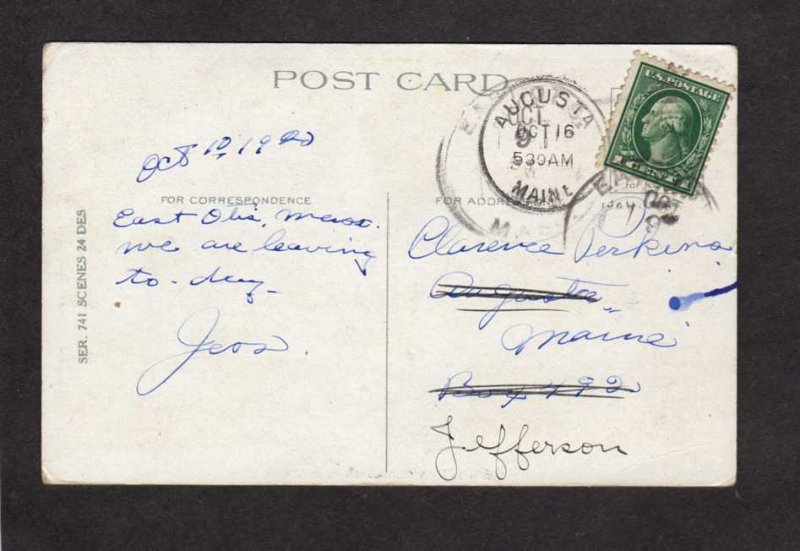 POST CARD
U.S. POSTAGE
1 CENT 1
AUGUSTA
OCT 16
530AM
MAINE
Oct 10, 1920
FOR CORRESPONDENCE
FOR ADDRESS
East Otis, Mass.
we are leaving
to-day-
Clarence Perkins
Augusta,
Maine
Box 492
Jefferson
SER. 741 SCENES 24 DES